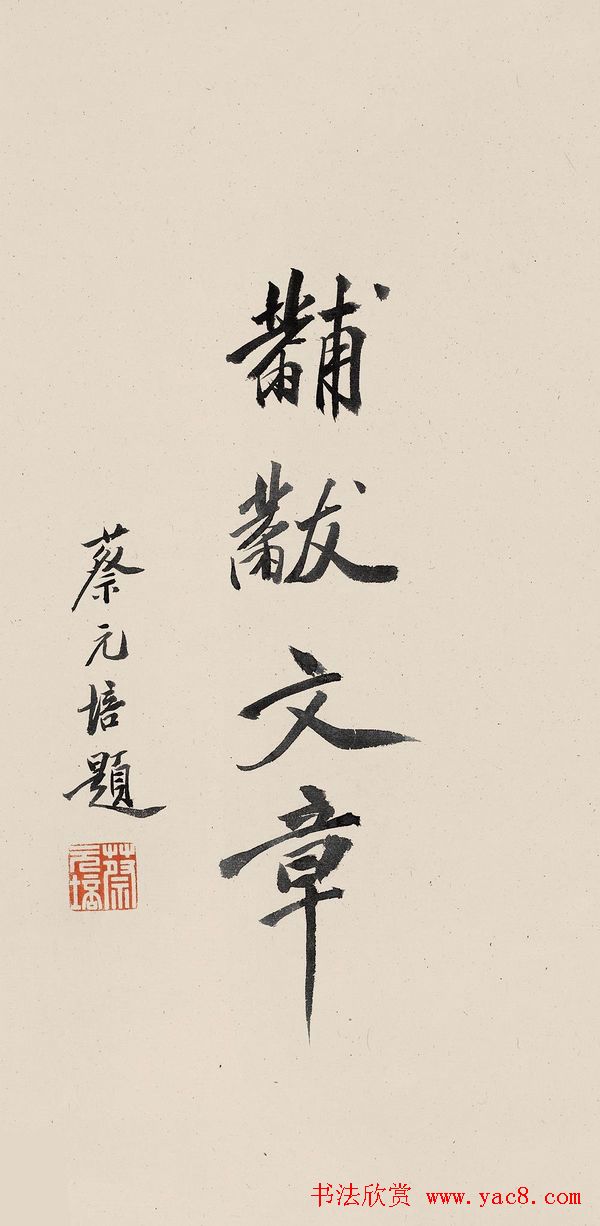 黼黻文章
蔡元培題
蔡元培
书法欣赏 www.yac8.com